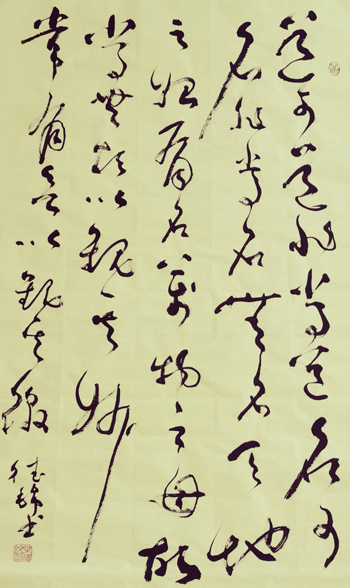 道可道非常道名可
名非常名無名天地
之始有名萬物之母故
常無欲以觀其妙
常有欲以觀其徼